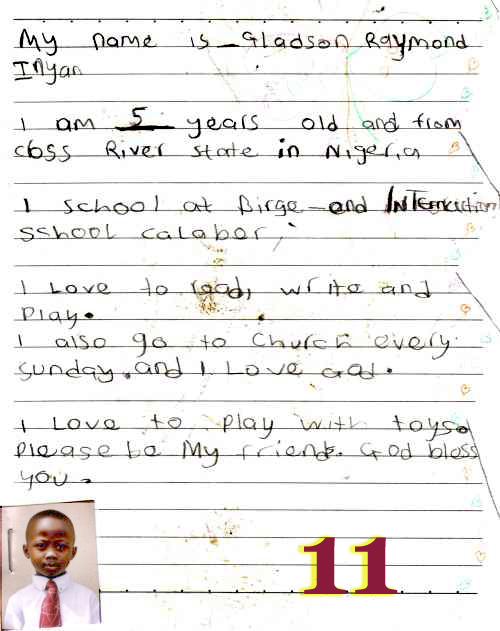 My name is Gladson Raymond
Inyan
I am 5 years old and from
cross River state in Nigeria
I school at Birge-end International
sshool calabar,
I Love to read, write and
Play.
I also go to Church every
sunday. and I Love God.
I Love to play with toys.
please be My friends. God bless
you.
11